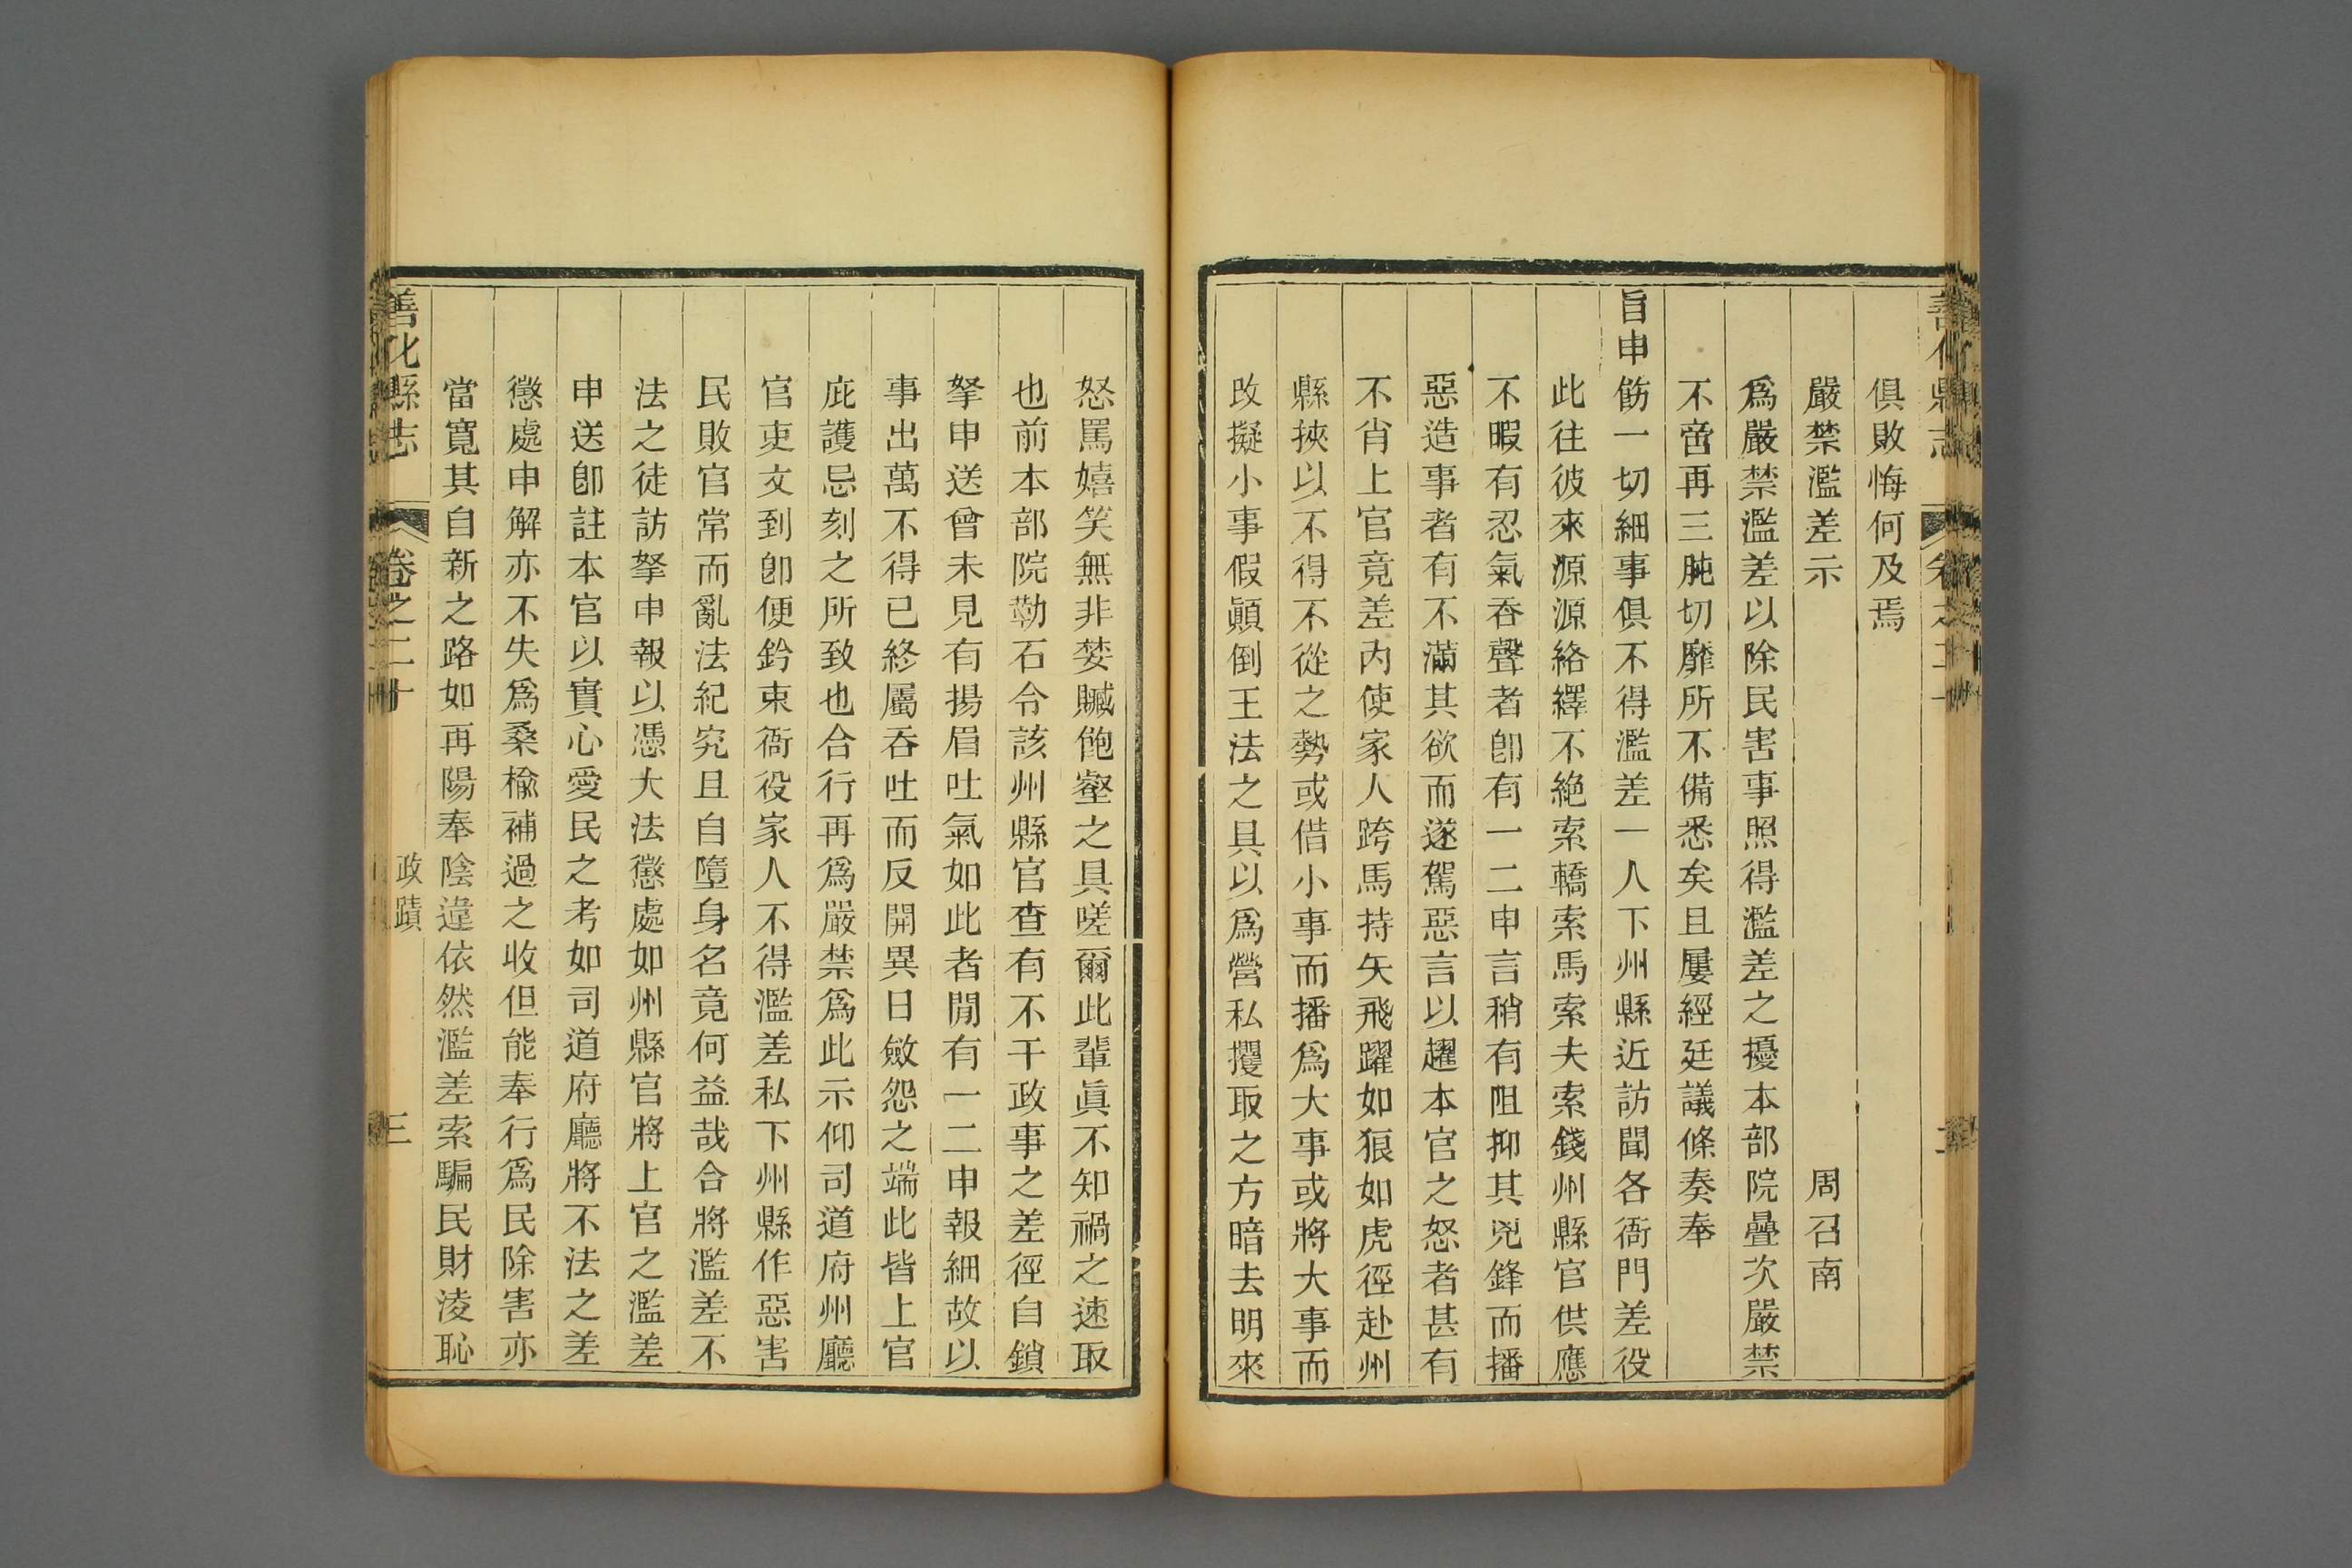 善化縣志 卷之二十
俱敗悔何及焉
嚴禁濫差示 周召南
爲嚴禁濫差以除民害事照得濫差之擾本部院疊次嚴禁
不啻再三肫切靡所不備悉矣且屢經廷議條奏奉
旨申飭一切細事俱不得濫差一人下州縣近訪聞各衙門差役
此往彼來源源絡繹不絕索轎索馬索夫索錢州縣官供應
不暇有忍氣吞聲者卽有一二申言稍有阻抑其兇鋒而播
惡造事者有不滿其欲而遂駕惡言以趯本官之怒者甚有
不肖上官竟差內使家人跨馬持矢飛躍如狼如虎徑赴州
縣挾以不得不從之勢或借小事而播爲大事或將大事而
改擬小事假顚倒王法之具以爲營私攫取之方暗去明來
怒罵嬉笑無非婪贓飽壑之具嗟爾此輩眞不知禍之速取
也前本部院勒石令該州縣官查有不干政事之差徑自鎖
拏申送曾未見有揚眉吐氣如此者閒有一二申報細故以
事出萬不得已終屬吞吐而反開異日斂怨之端此皆上官
庇護忌刻之所致也合行再爲嚴禁爲此示仰司道府州廳
官吏文到卽便鈐束衙役家人不得濫差私下州縣作惡害
民敗官常而亂法紀究且自墮身名竟何益哉合將濫差不
法之徒訪拏申報以憑大法懲處如州縣官將上官之濫差
申送卽註本官以實心愛民之考如司道府廳將不法之差
懲處申解亦不失爲桑榆補過之收但能奉行爲民除害亦
當寬其自新之路如再陽奉陰違依然濫差索騙民財淩恥
善化縣志 卷之二十 政蹟 三